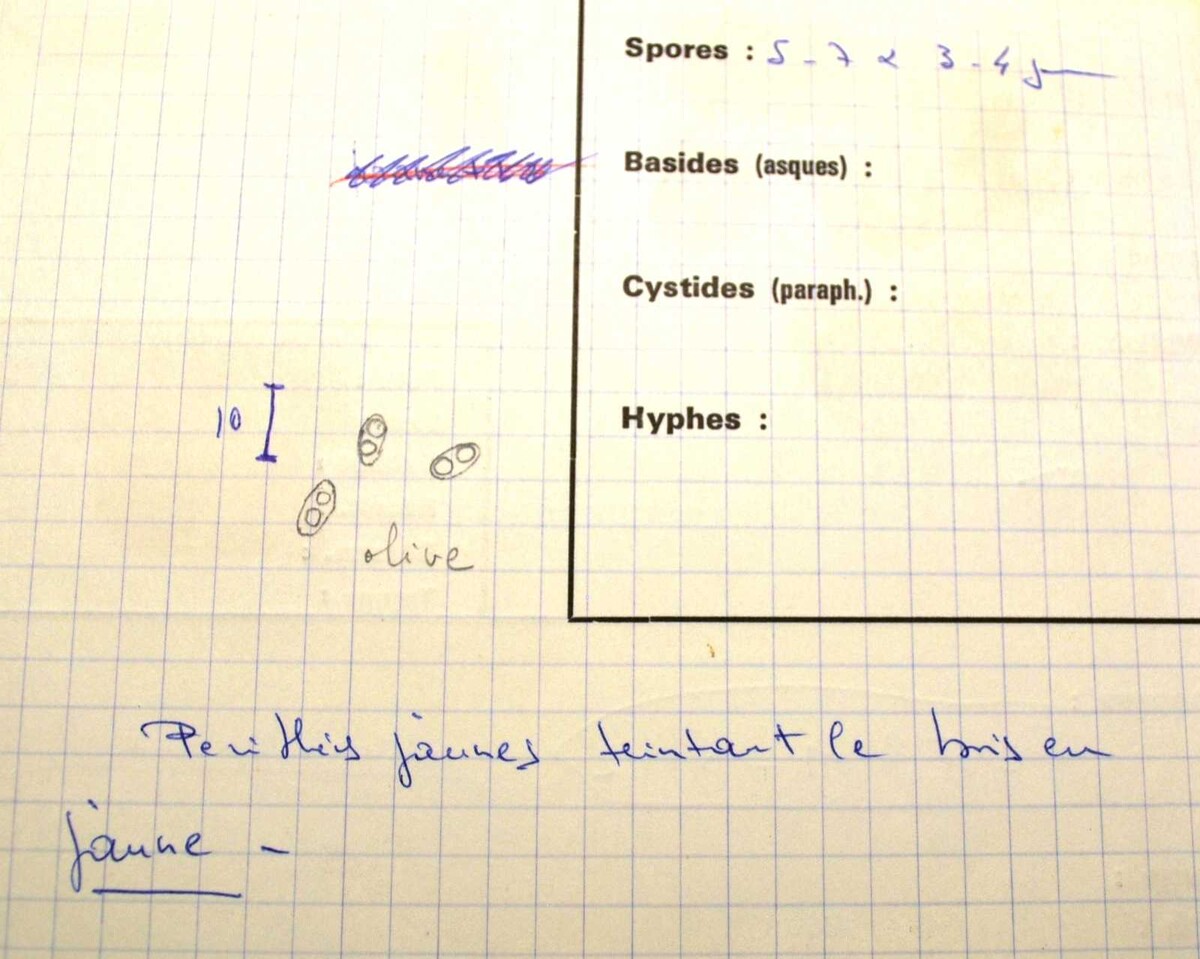 Spores : 5 - 7 x 3 - 4 µ
Basides (asques) :
Cystides (paraph.) :
10
Hyphes :
olive
Perithés jaunes teintant le bois en
jaune -